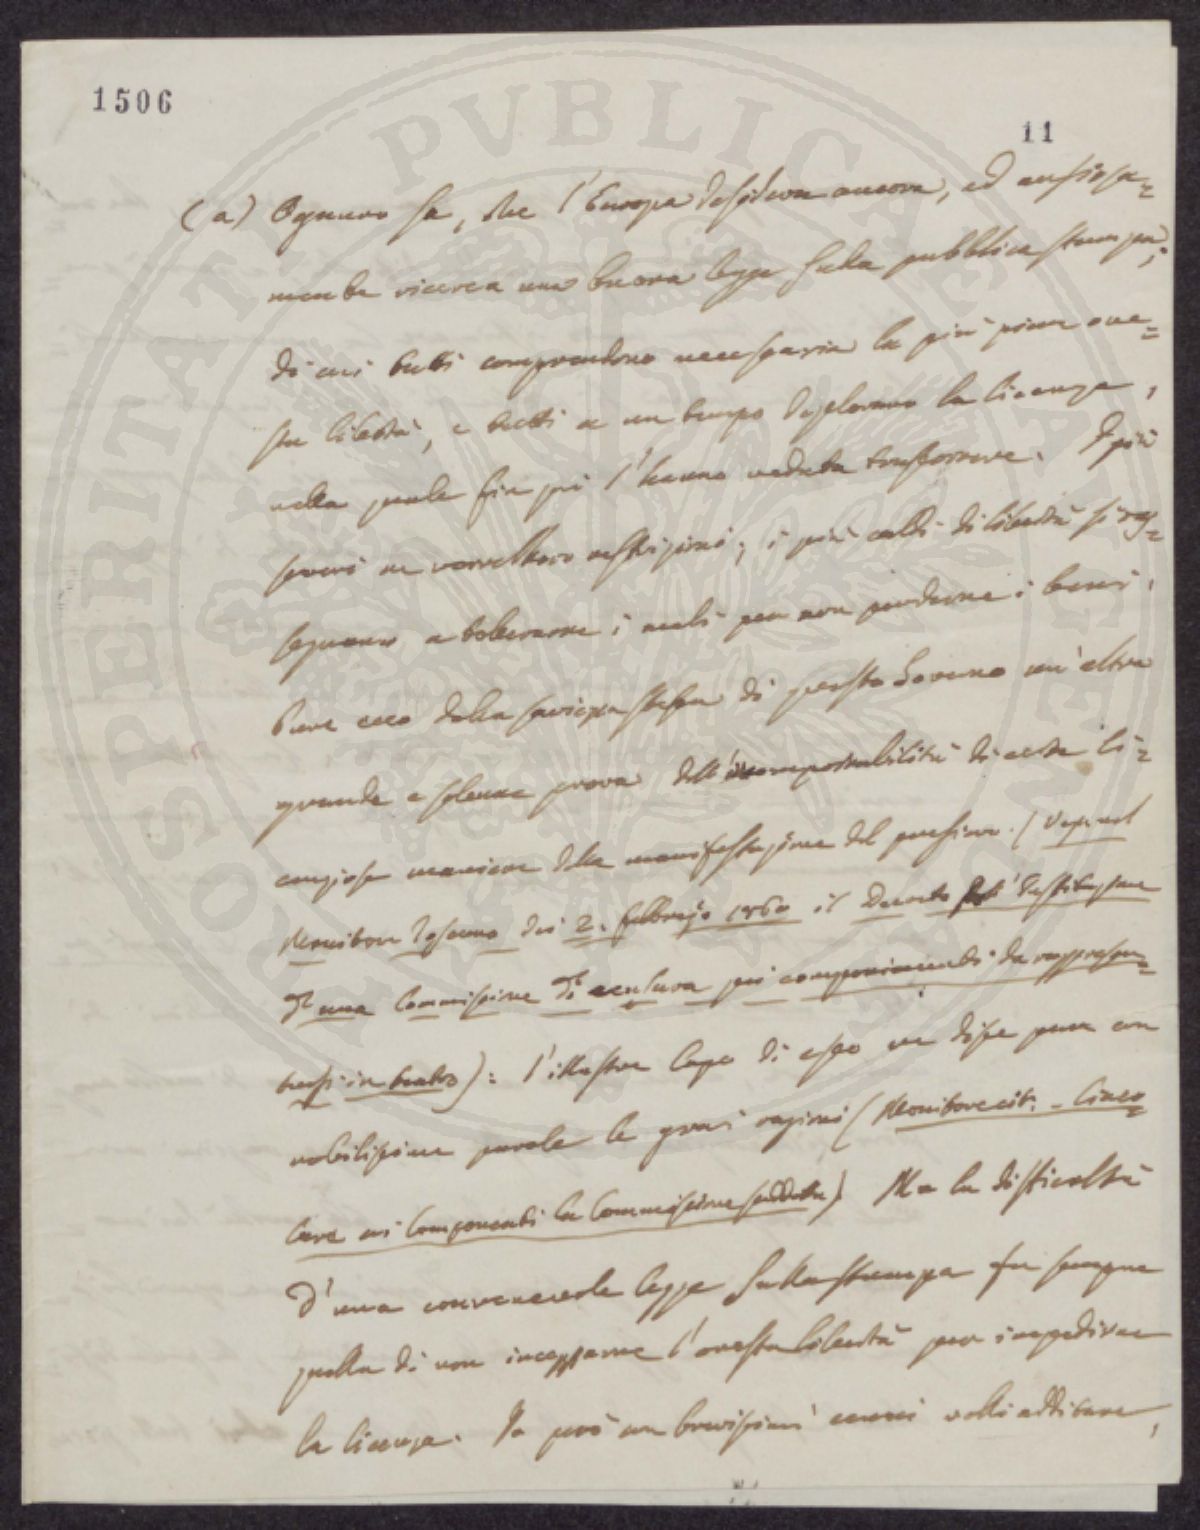 1506
11
(a) Ognuno sa, che l'Europa desidera ancora, ed ansiosa=
mente ricerca una buona legge sulla pubblica stampa,
di cui tutti comprendono necessaria la più piena one=
sta libertà, e tutti a un tempo deplorano la licenza,
nella quale fin qui l'hanno veduta trascorrere. I più
severi ne vorrebbero restrizioni; i più caldi di libertà si ras=
segnano a tollerarne i mali per non perderne i beni.
Pure ecco dalla saviezza stessa di questo Governo un'altra
grande e solenne prova dell'incomportabilità di certa li=
cenziosa maniera della manifestazione del pensiero. (Ved. nel
Monitore Toscano dei 2. febbrajo 1860 il Decreto d'istituzione
d'una Commissione di censura pei componimenti da rappresen=
tarsi in teatro): l'illustre Capo di esso ne disse pure con
nobilissime parole le gravi ragioni (Monitore cit. - Circo=
lare ai Componenti la Commissione suddetta). Ma la difficoltà
d'una convenevole legge sulla stampa fu sempre
quella di non incepparne l'onesta libertà per impedirne
la licenza. Io però con brevissimi cenni volli additare,
PROSPERITATI PVBLICAE